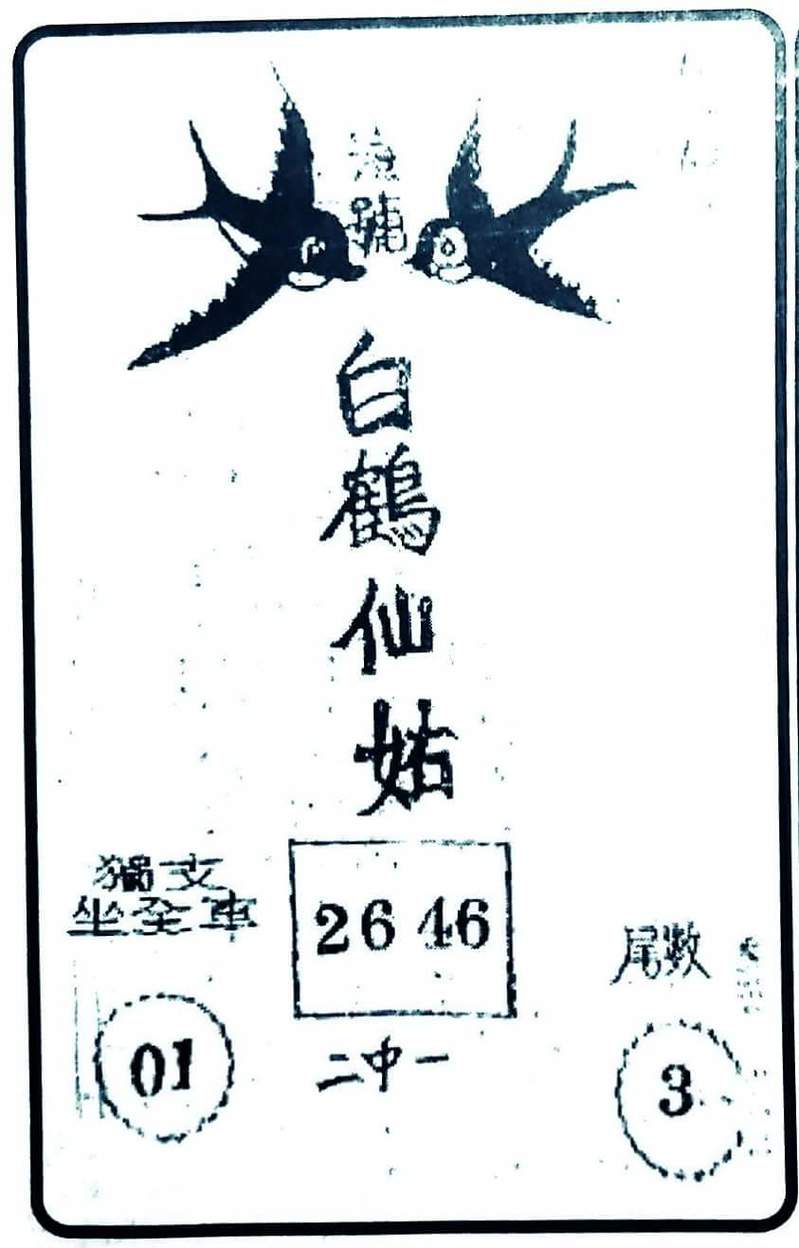 號
白鶴仙姑
獨支
坐全車
01
26 46
二中一
尾數
3